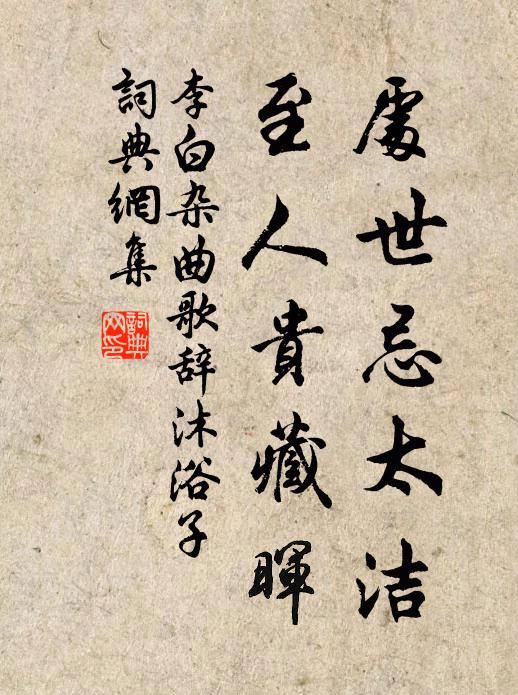 處世忌太洁
至人貴藏暉
李白杂曲歌辞沐浴子
詞典網集
詞典网印